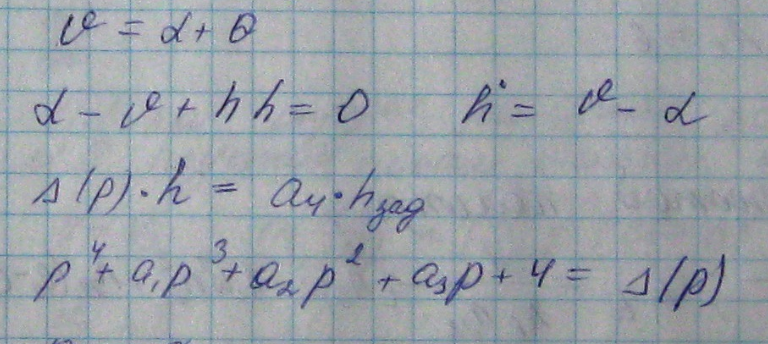 ϑ = α + θ
α - ϑ + h h = 0 ḣ = ϑ - α
Δ(p)·h = a₄·hзад
p⁴ + a₁p³ + a₂p² + a₃p + 4 = Δ(p)